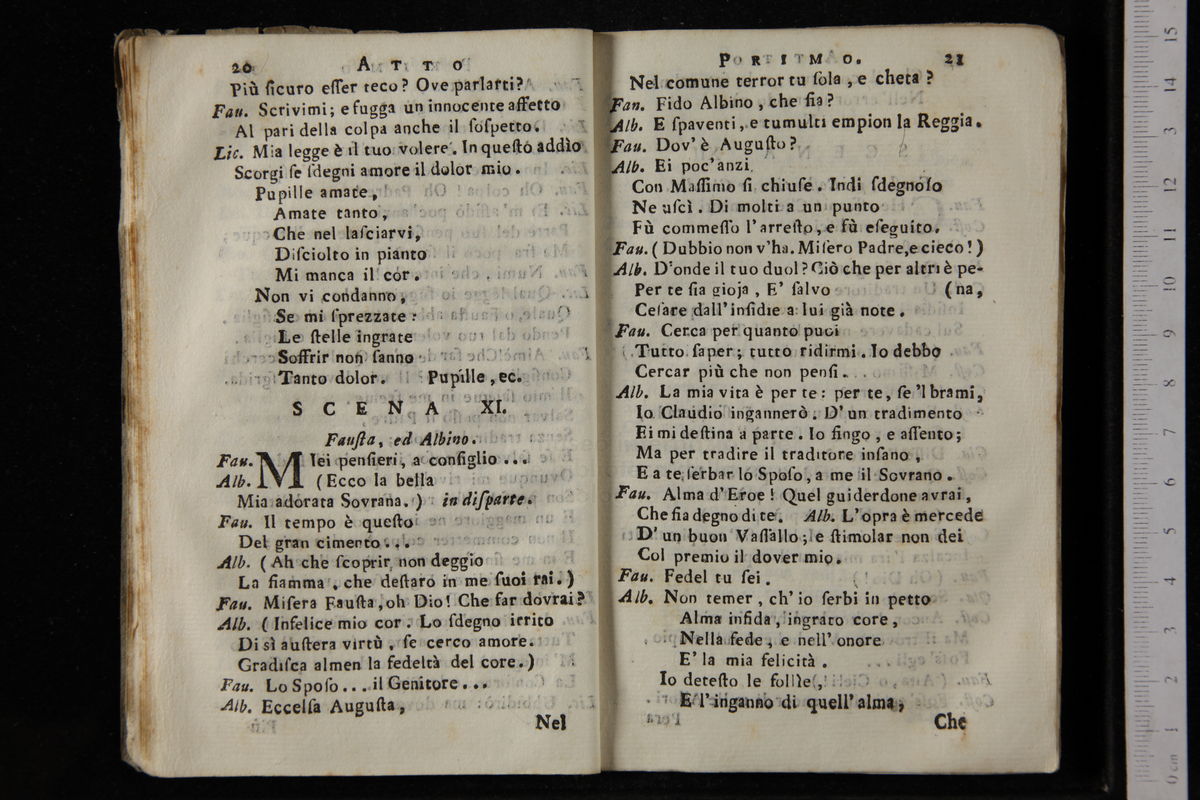 20 ATTO
Più ſicuro eſſer teco? Ove parlarti?
Fau. Scrivimi; e fugga un innocente affetto
Al pari della colpa anche il ſoſpetto.
Lic. Mia legge è il tuo volere. In queſto addìo
Scorgi ſe ſdegni amore il dolor mio.
Pupille amate,
Amate tanto,
Che nel laſciarvi,
Diſciolto in pianto
Mi manca il cor.
Non vi condanno,
Se mi ſprezzate:
Le ſtelle ingrate
Soffrir non ſanno
Tanto dolor. Pupille, ec.
SCENA XI.
Fauſta, ed Albino.
Fau. MIei penſieri, a conſiglio...
Alb. (Ecco la bella
Mia adorata Sovrana.) in diſparte.
Fau. Il tempo è queſto
Del gran cimento...
Alb. (Ah che ſcoprir non deggio
La fiamma, che deſtaro in me ſuoi rai.)
Fau. Miſera Fauſta, oh Dio! Che far dovrai?
Alb. (Infelice mio cor. Lo ſdegno irrito
Di sì auſtera virtù, ſe cerco amore.
Gradiſca almen la fedeltà del core.)
Fau. Lo Spoſo... il Genitore...
Alb. Eccelſa Auguſta,
Nel
PORITMO. 21
Nel comune terror tu ſola, e cheta?
Fan. Fido Albino, che fia?
Alb. E ſpaventi, e tumulti empion la Reggia.
Fau. Dov'è Auguſto?
Alb. Ei poc'anzi
Con Maſſimo ſi chiuſe. Indi ſdegnoſo
Ne uſcì. Di molti a un punto
Fù commeſſo l'arreſto, e fù eſeguito.
Fau. (Dubbio non v'ha. Miſero Padre, e cieco!)
Alb. D'onde il tuo duol? Ciò che per altri è pe-
Per te ſia gioja, E' ſalvo (na,
Ceſare dall'inſidie a lui già note.
Fau. Cerca per quanto puoi
Tutto ſaper; tutto ridirmi. Io debbo
Cercar più che non penſi.
Alb. La mia vita è per te: per te, ſe 'l brami,
Io Claudio ingannerò. D'un tradimento
Ei mi deſtina a parte. Io fingo, e aſſento;
Ma per tradire il traditore inſano,
E a te ſerbar lo Spoſo, a me il Sovrano.
Fau. Alma d'Eroe! Quel guiderdone avrai,
Che fia degno di te. Alb. L'opra è mercede
D'un buon Vaſſallo; e ſtimolar non dei
Col premio il dover mio.
Fau. Fedel tu ſei.
Alb. Non temer, ch'io ſerbi in petto
Alma infida, ingrato core,
Nella fede, e nell'onore
E' la mia felicità.
Io deteſto le follìe,
E l'inganno di quell'alma,
Che